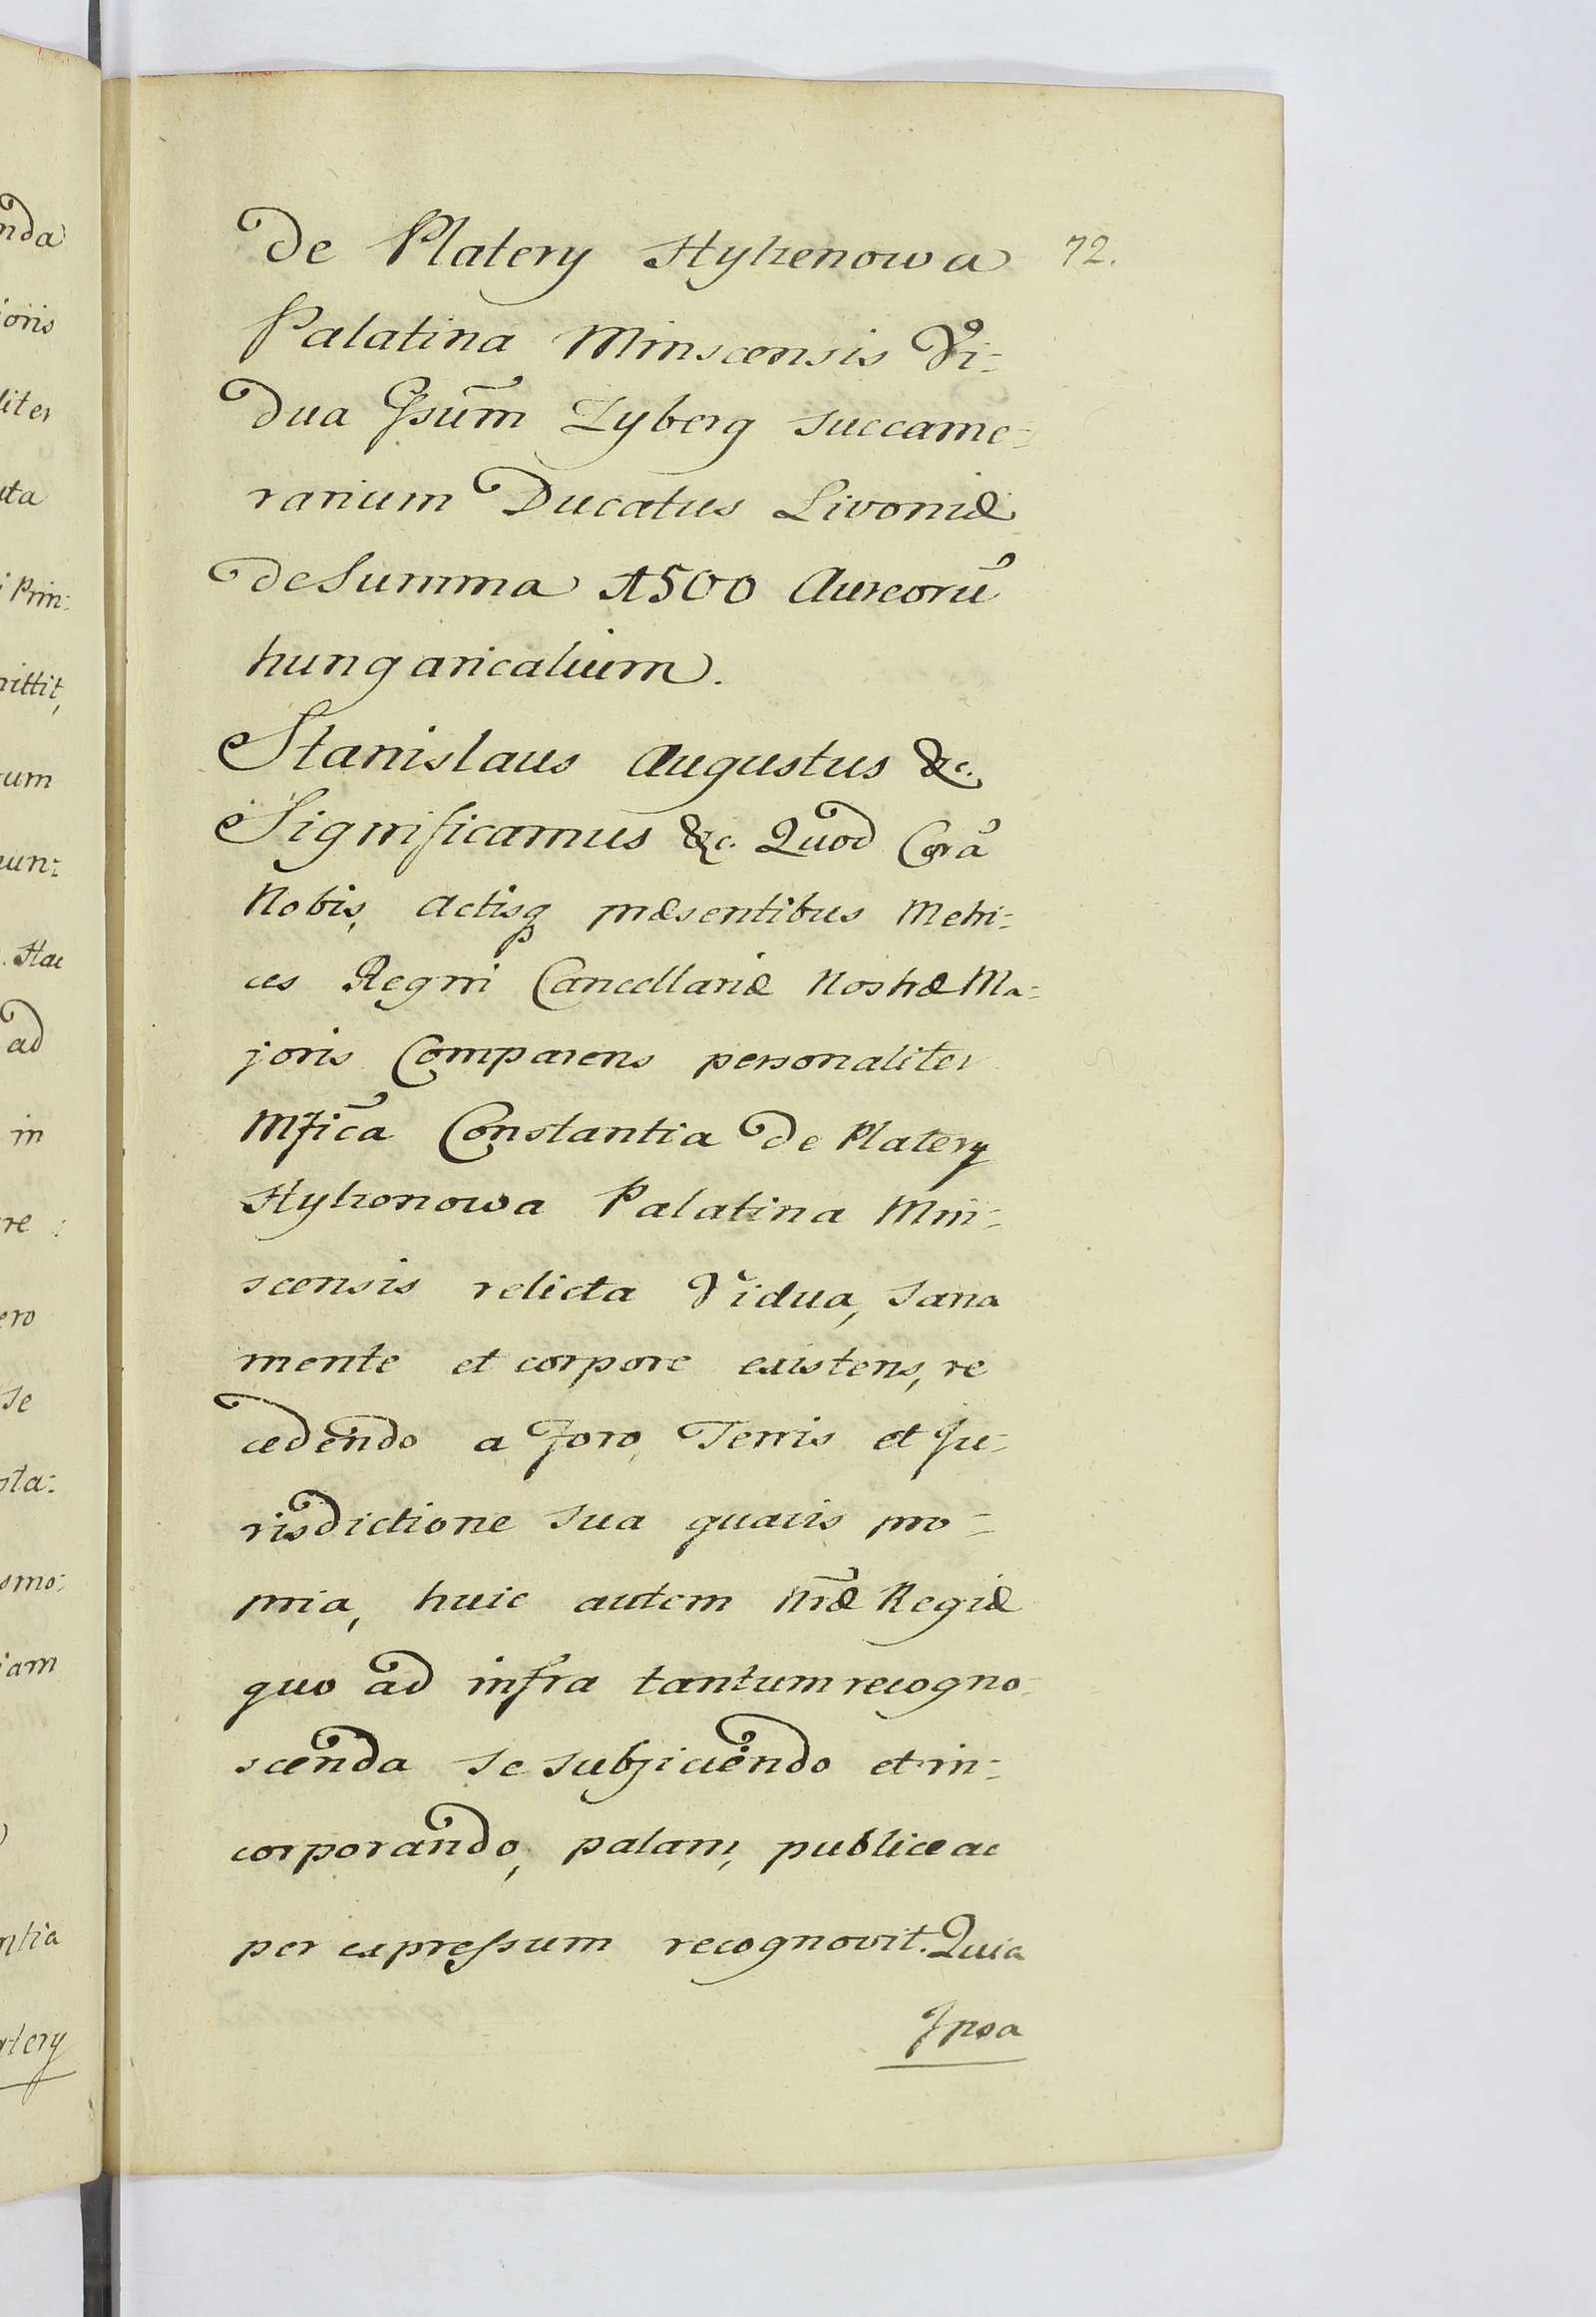 nda
ioris
liter
uta
i Prin:
nittit,
tum
nun:
. Hac
ad
in
re :
ero
se
ota:
smo:
iam
ntia
atery
72.
de Platery Hylzenowa
Palatina Minscensis Vi=
dua Gsum̃ Zyberg succame=
rarium Ducatus Livoniæ
de Summa 1500 Aureorū
hungaricalium.
Stanislaus Augustus &c.
Significamus &c. Quod Corā
Nobis, actisq præsentibus Metri=
ces Regni Cancellariæ Nostræ Ma=
joris Comparens personaliter
Mficã Constantia de Platery
Hylzenowa Palatina Min=
scensis relicta Vidua, sana
mente et corpore existens, re
cedendo a Foro, Terris et Ju=
risdictione sua quavis pro=
pria, huic autem Nræ̃ Regiæ
quo ad infra tantum recogno=
scenda se subjiciendo et in=
corporando, palam, publice ac
per expressum recognovit. Quia
Ipsa